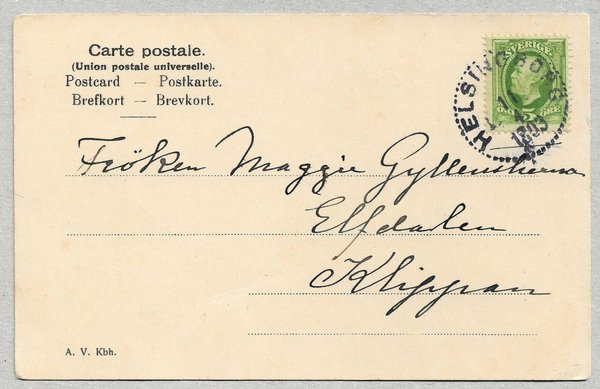 Carte postale.
(Union postale universelle).
Postcard — Postkarte.
Brefkort — Brevkort.
SVERIGE
HELSINGBORG
1903
Fröken Maggie Gyllenstierna
Elfdalen
Klippan
A. V. Kbh.